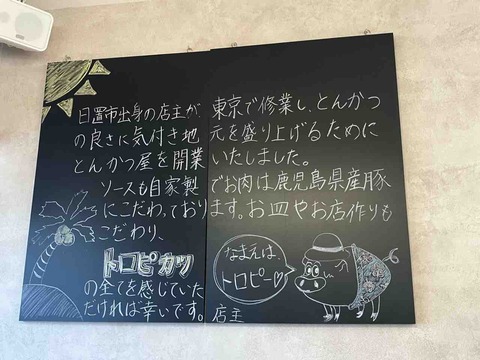 日置市出身の店主が、東京で修業し、とんかつ
の良さに気付き地元を盛り上げるために
とんかつ屋を開業いたしました。
ソースも自家製でお肉は鹿児島県産豚
にこだわっております。お皿やお店作りも
こだわり、
トロピカツ
の全てを感じていた
だければ幸いです。店主
なまえは、
トロピー♡